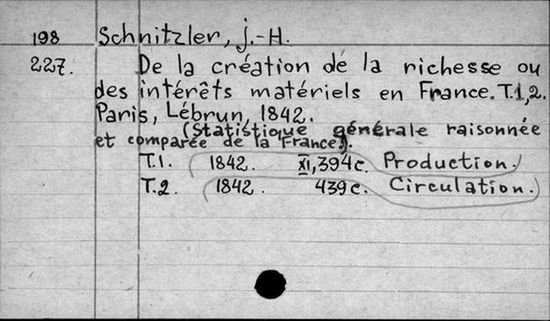 198 Schnitzler, J.-H.
227. De la création de la richesse ou
des intérêts matériels en France. T.1,2.
Paris, Lébrun, 1842.
(Statistique générale raisonnée
et comparée de la France).
T.1. 1842. XI,394c. Production.)
T.2. 1842. 439c. Circulation.)